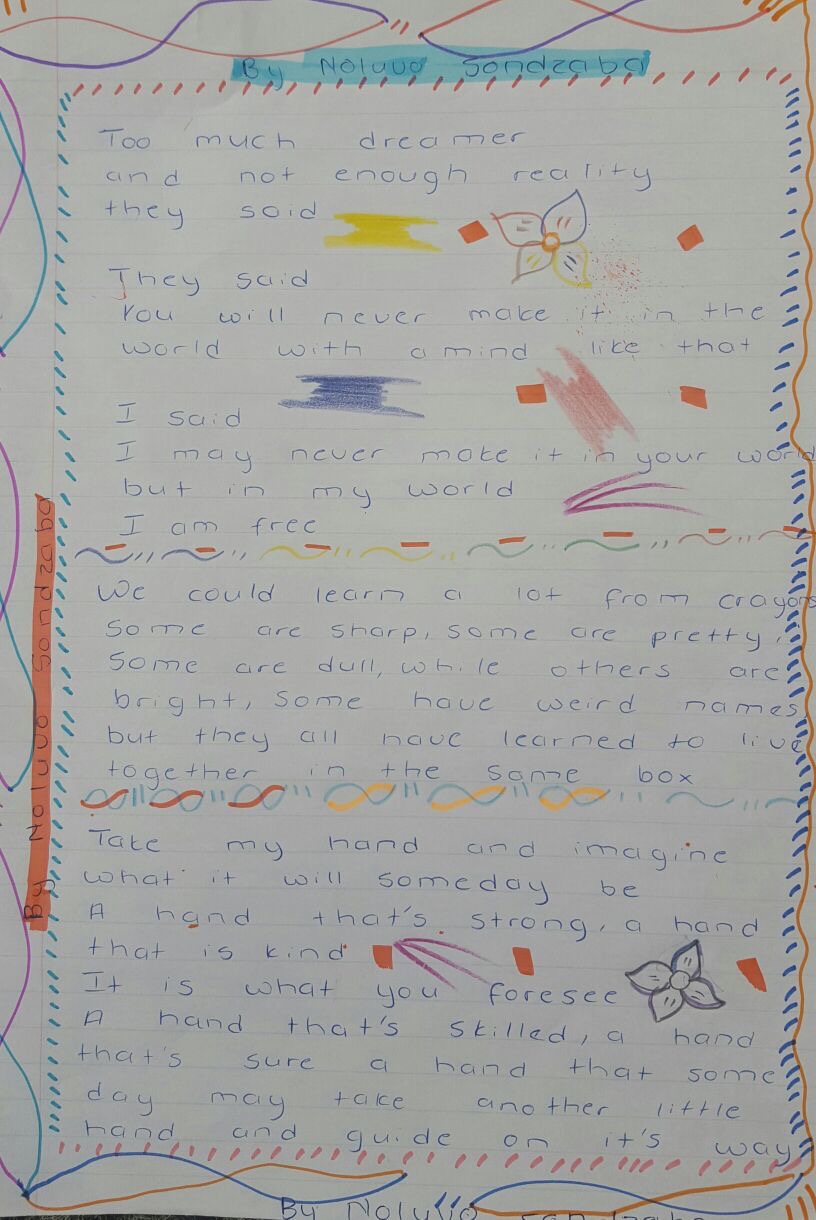 By Noluvo Sondzaba
Too much dreamer
and not enough reality
they said
They said
You will never make it in the
world with a mind like that
I said
I may never make it in your world
but in my world
I am free
We could learn a lot from crayons
Some are sharp, some are pretty,
Some are dull, while others are
bright, some have weird names
but they all have learned to live
together in the same box
Take my hand and imagine
what it will someday be
A hand that's strong, a hand
that is kind
It is what you foresee
A hand that's skilled, a hand
that's sure a hand that some
day may take another little
hand and guide on it's way
By Noluvo Sondzaba
By Noluvo